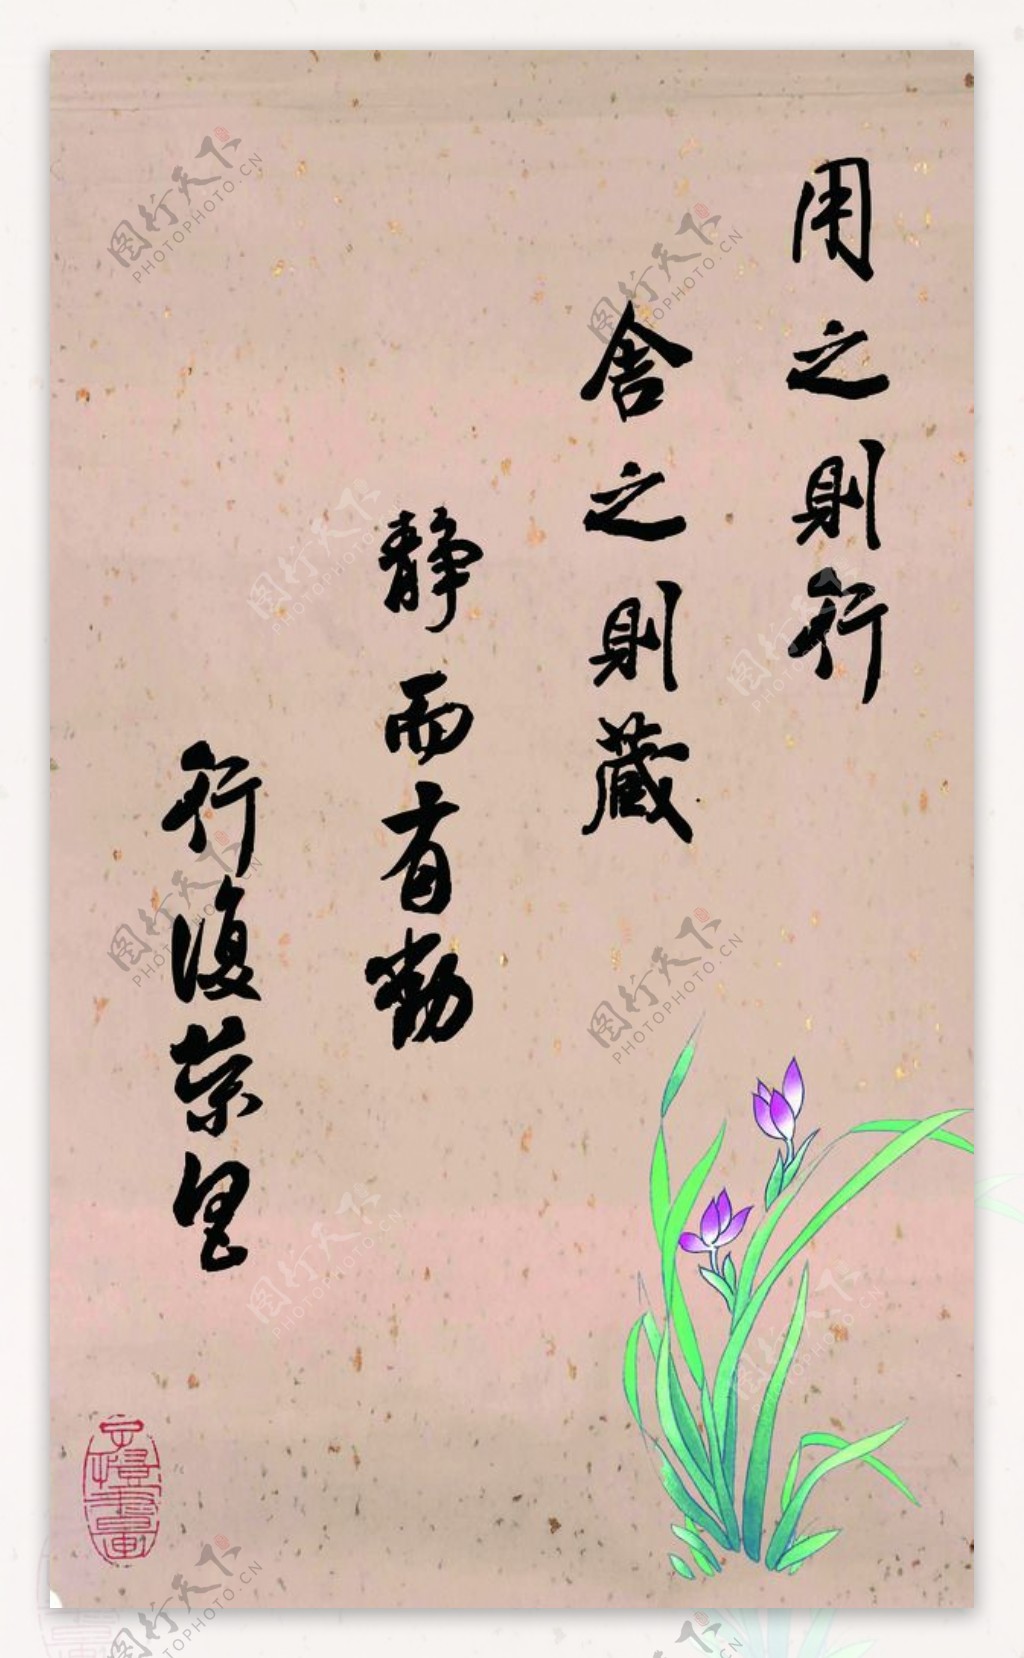 用之則行
舍之則藏
静而有勤
行復荣里
图行天下
PHOTOPHOTO.CN